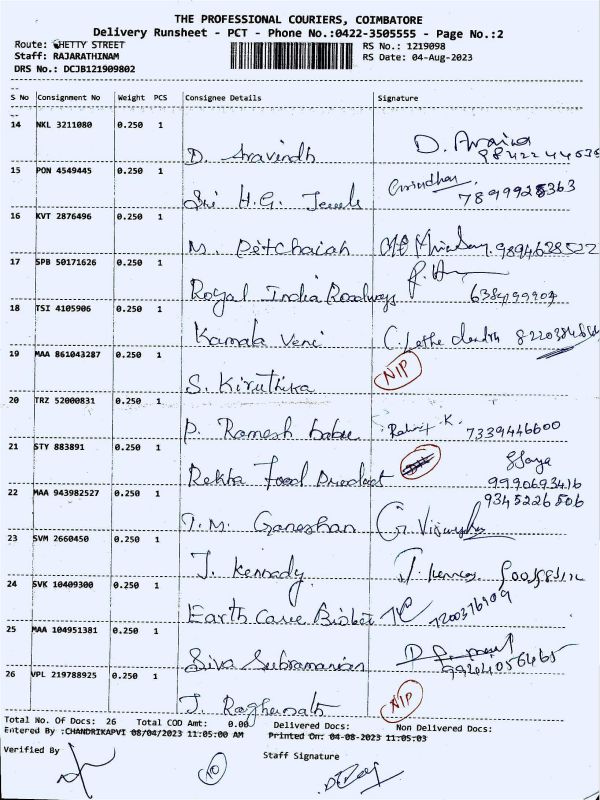 THE PROFESSIONAL COURIERS, COIMBATORE
Delivery Runsheet - PCT - Phone No.:0422-3505555 - Page No.:2
Route: CHETTY STREET RS No.: 1219098
Staff: RAJARATHINAM RS Date: 04-Aug-2023
DRS No.: DCJB121909802
S No Consignment No Weight PCS Consignee Details Signature
14 NKL 3211080 0.250 1
D. Aravindh
15 PON 4549445 0.250 1
Sri H.G. Jewels 7899928363
16 KVT 2876496 0.250 1
M. Petchaiah 9894628522
17 SPB 50171626 0.250 1
Royal India Roadways
18 TSI 4105906 0.250 1
Kamala Veni
19 MAA 861043287 0.250 1
S. Kiruthika NIP
20 TRZ 52000831 0.250 1
P. Ramesh babu 7339446600
21 STY 883891 0.250 1
Rekha Food Product 9990693416
22 MAA 943982527 0.250 1 9345226506
T.M. Ganeshan
23 SVM 2660450 0.250 1
J. Kennady
24 SVK 10409300 0.250 1
Earth Care
25 MAA 104951381 0.250 1
Siva Subramanian
26 VPL 219788925 0.250 1
J. NIP
Total No. Of Docs: 26 Total COD Amt: 0.00 Delivered Docs: Non Delivered Docs:
Entered By :CHANDRIKAPVI 08/04/2023 11:05:00 AM Printed On: 04-08-2023 11:05:03
Verified By Staff Signature